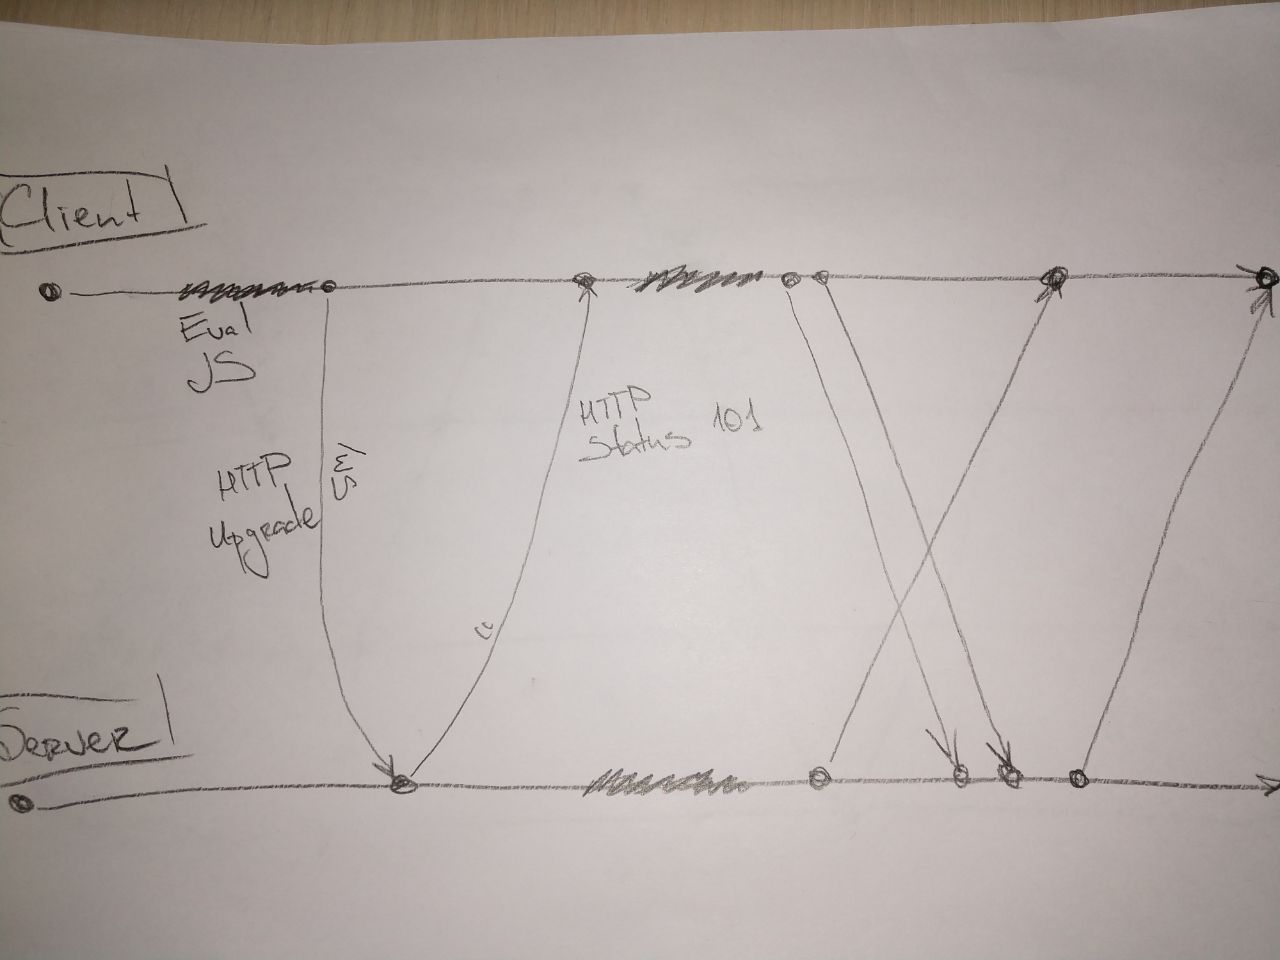 Client
Eval
JS
HTTP
Upgrade
/ws
HTTP
Status 101
Server